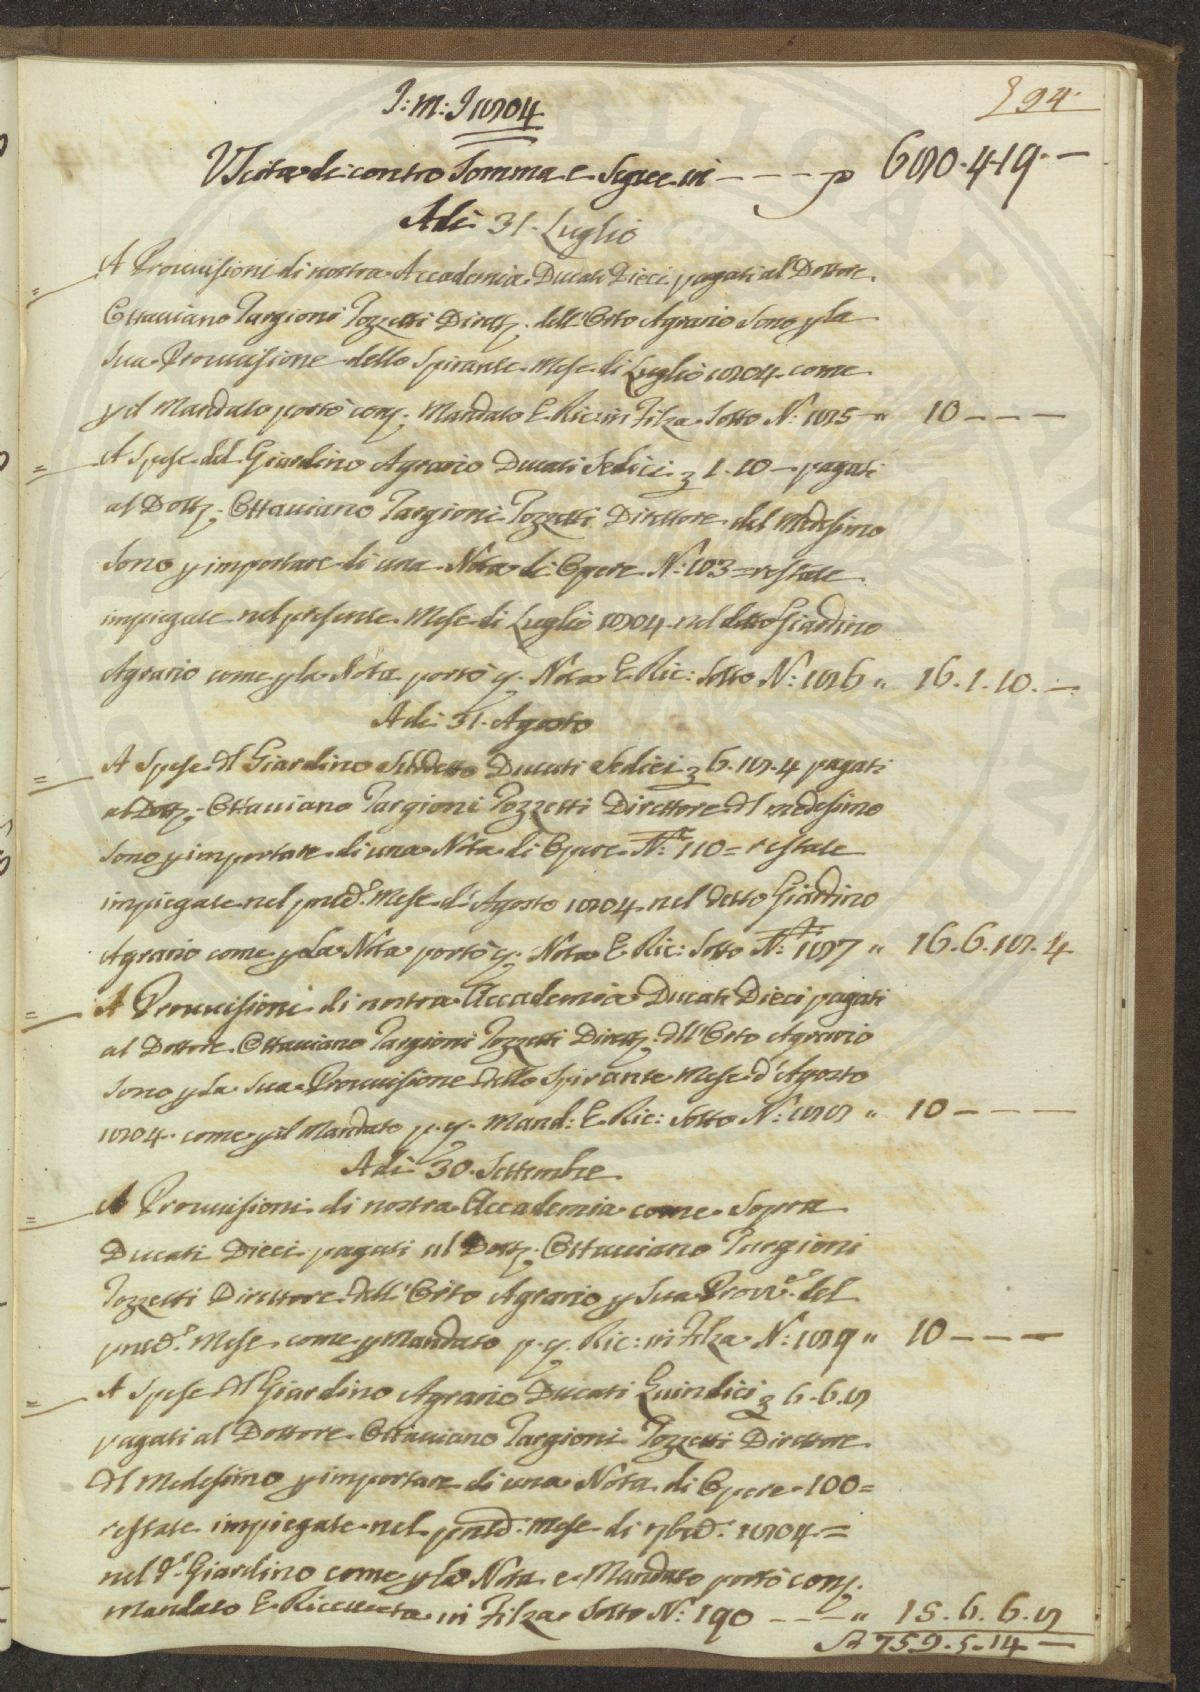 J: M: J 1804
294
Uscita di contro Somma e Segue in - - - - p 680.4.19.-
Adì 31. Luglio
A Provvisioni di nostra Accademia Ducati Dieci pagati al Dottore
Ottaviano Targioni Tozzetti Dirett.e dell'Orto Agrario Sono p la
Sua Provvisione dello Spirante Mese di Luglio 1804 come
p il Mandato portò cons. Mandato E Ric: in Filza Sotto N: 185 " 10 - - - -
A Spese del Giardino Agrario Ducati Sedici 3 1.10 - pagati
al Dott.e Ottaviano Targioni Tozzetti Direttore del Medesimo
Sono p importare di una Nota di Opere N: 103 = restate
impiegate nel presente Mese di Luglio 1804 nel detto Giardino
Agrario come p la Nota portò q. Nota E Ric: Sotto N: 186 " 16.1.10.-
Adì 31. Agosto
A Spese dl Giardino Suddetto Ducati Sedici 3 6.18.4 pagati
al Dott.e Ottaviano Targioni Tozzetti Direttore dl medesimo
Sono p importare di una Nota di Opere N: 110 = restate
impiegate nel pnte d.o Mese d'Agosto 1804 nel detto Giardino
Agrario come p la Nota portò q. Nota E Ric: Sotto N: 187 " 16.6.18.4
A Provvisioni di nostra Accademia Ducati Dieci pagati
al Dottore Ottaviano Targioni Tozzetti Dirett.e dll'Orto Agrario
Sono p la Sua Provvisione dello Spirante Mese d'Agosto
1804. come p il Mandato p. q. Mand: E Ric: Sotto N: 188 " 10 - - - -
Adì 30. Settembre
A Provvisioni di nostra Accademia come Sopra
Ducati Dieci pagati al Dott.e Ottaviano Targioni
Tozzetti Direttore dell'Orto Agrario p Sua Provv.e del
pnte d.o Mese come p Mandato p. q. Ric: in Filza N: 189 " 10 - - - -
A Spese dl Giardino Agrario Ducati Quindici 3 6.6.8
pagati al Dottore Ottaviano Targioni Tozzetti Direttore
dl Medesimo p importare di una Nota di Opere 100 =
restate impiegate nel pnte d.o Mese di 7bre d.o 1804. =
nel d.o Giardino come p la Nota e Mandato portò cons.
Mandato E Ricevuta in Filza Sotto N: 190 - - - " 15.6.6.8
Sa 759.5.14 -